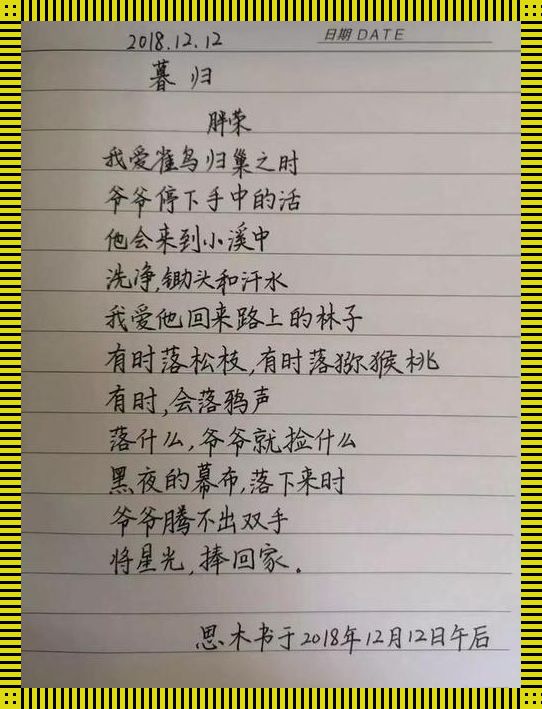 2018.12.12
日期 DATE
暮归
胖荣
我爱雀鸟归巢之时
爷爷停下手中的活
他会来到小溪中
洗净,锄头和汗水
我爱他回来路上的林子
有时落松枝,有时落猕猴桃
有时,会落鸦声
落什么,爷爷就捡什么
黑夜的幕布,落下来时
爷爷腾不出双手
将星光,捧回家。
思木书于2018年12月12日午后